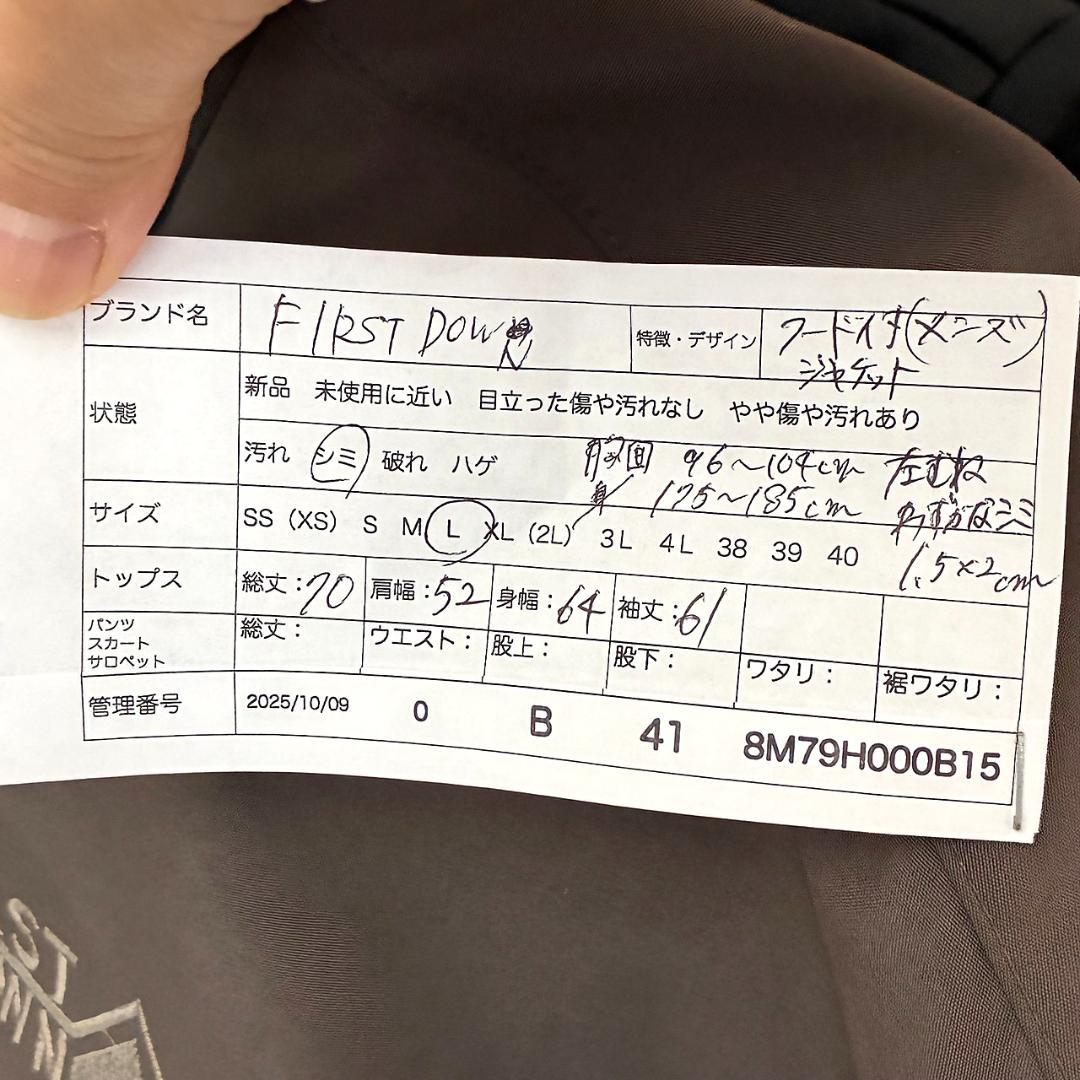 ブランド名 FIRST DOWN 特徴・デザイン フード付(メンズ)
ジャケット
状態 新品 未使用に近い 目立った傷や汚れなし やや傷や汚れあり
汚れ シミ 破れ ハゲ 胸囲 96〜104cm 左むね
身 175〜185cm わずかなシミ
サイズ SS(XS) S M L XL(2L) 3L 4L 38 39 40
1.5×2cm
トップス 総丈:70 肩幅:52 身幅:64 袖丈:61
パンツ
スカート
サロペット
総丈: ウエスト: 股上: 股下: ワタリ: 裾ワタリ:
管理番号 2025/10/09 0 B 41 8M79H000B15